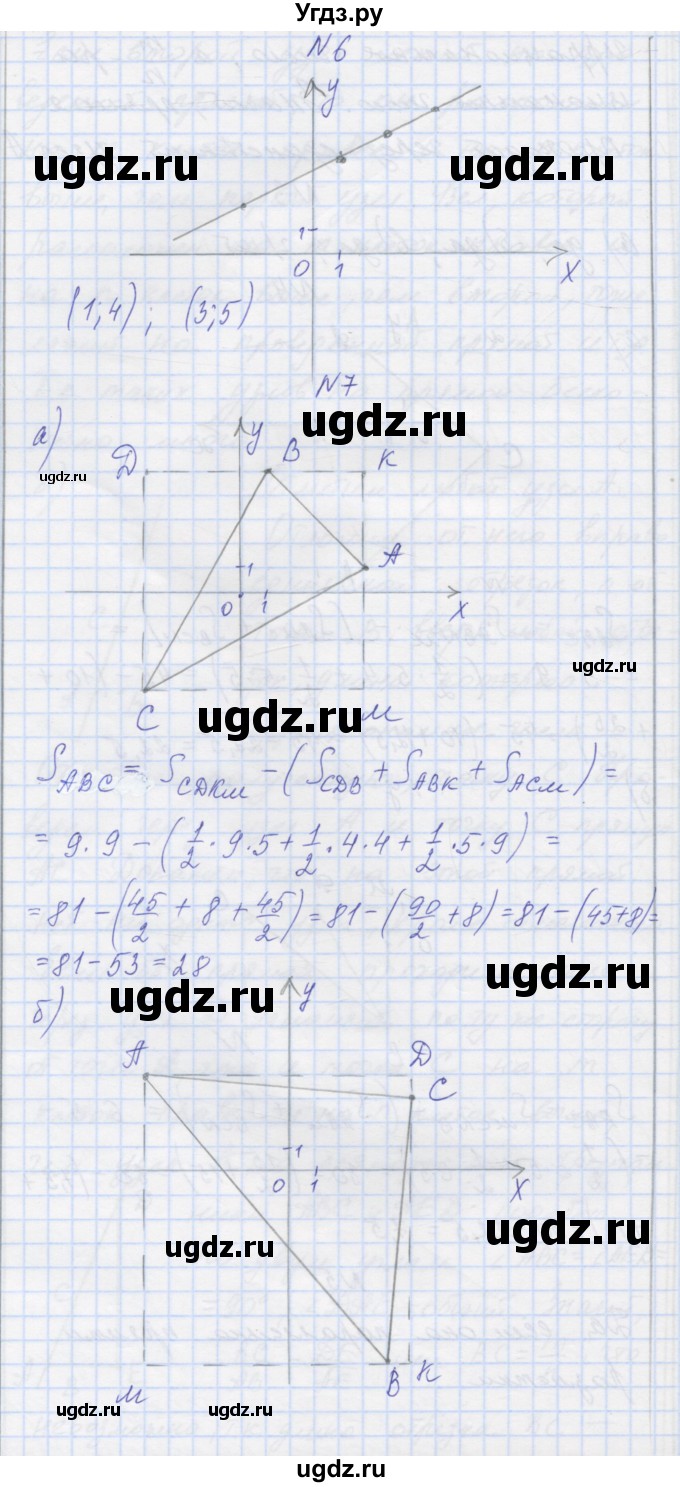 Угдз.ру
N6
y
ughdz.ru ughdz.ru
1
0 1 x
(1;4); (3;5)
N7
ugdz.ru
а) y B
Д K
ugdz.ru
A
1
0 1 x
ugdz.ru
C M
ugdz.ru
S_ABC = S_CДKM - (S_CДB + S_ABK + S_ACM) =
= 9·9 - (1/2·9·5 + 1/2·4·4 + 1/2·5·9) =
= 81 - (45/2 + 8 + 45/2) = 81 - (90/2 + 8) = 81 - (45+8) =
= 81 - 53 = 28
ugdz.ru
ugdz.ru
б) y
A Д
C
1
0 1 x
ugdz.ru
ugdz.ru
M B K
ugdz.ru ugdz.ru
ugdz.ru